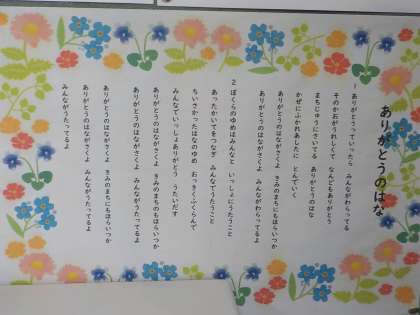 ありがとうのはな
1 ありがとうっていったら みんながわらってる
そのかおがうれしくて なんどもありがとう
まちじゅうにさいてる ありがとうのはな
かぜにふかれあしたに とんでいく
ありがとうのはながさくよ きみのまちにもほらいつか
ありがとうのはながさくよ みんながわらってるよ
2 ぼくらのゆめはみんなと いっしょにうたうこと
あったかいてをつなぎ みんなでうたうこと
ちいさかったはなのゆめ おっきくふくらんで
みんなでいっしょありがとう うたいだす
ありがとうのはながさくよ きみのまちにもほらいつか
ありがとうのはながさくよ みんながうたってるよ
ありがとうのはながさくよ きみのまちにもほらいつか
ありがとうのはながさくよ みんながうたってるよ
みんながうたってるよ